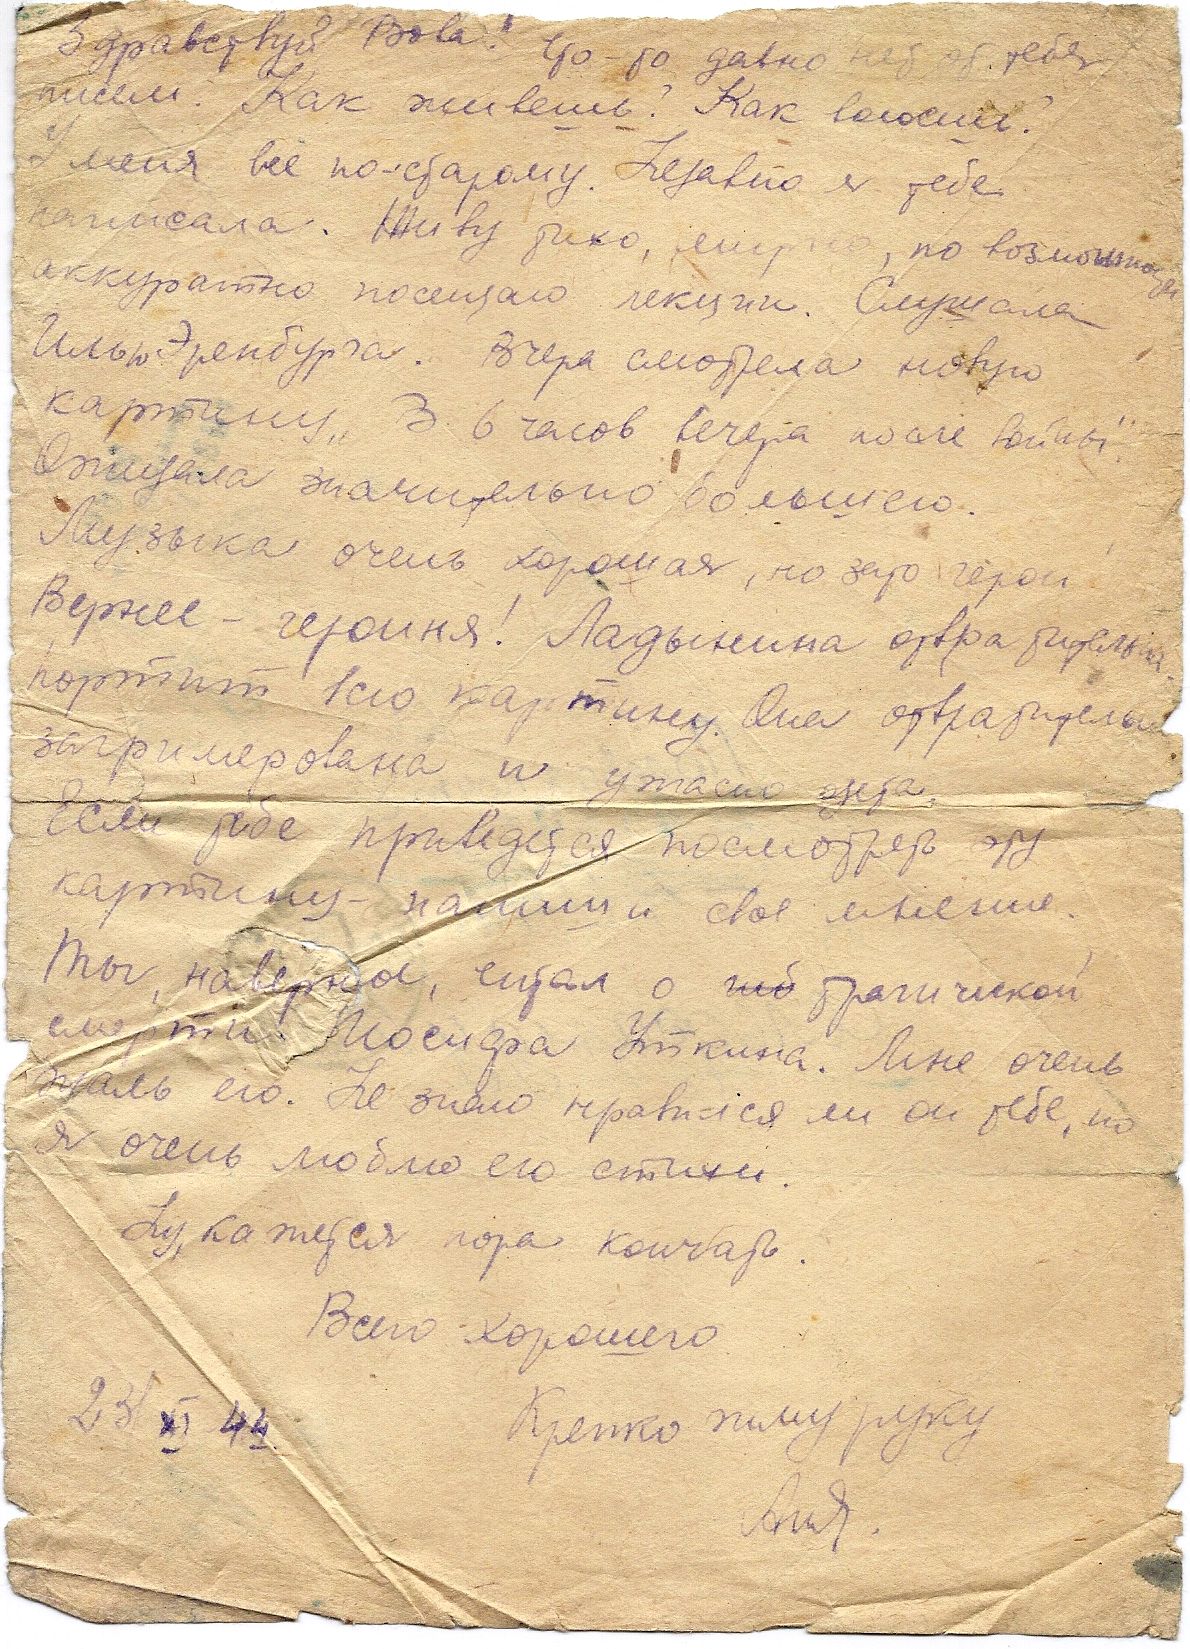 Здравствуй Вова! Что-то давно нет от тебя
писем. Как живешь? Как воюешь?
У меня всё по-старому. Недавно я тебе
написала. Живу тихо, мирно, по возможности
аккуратно посещаю лекции. Слушала
Илью Эренбурга. Вчера смотрела новую
картину „В 6 часов вечера после войны".
Ожидала значительно большего.
Музыка очень хорошая, но зато герои
Вернее – героиня! Ладынина отвратительна.
портит всю картину. Она отвратительно
загримирована и ужасно одета.
Если тебе приведется посмотреть эту
картину – напиши свое мнение.
Ты, наверное, читал о трагической
смерти Иосифа Уткина. Мне очень
жаль его. Не знаю нравился ли он тебе, но
я очень люблю его стихи.
Ну, кажется пора кончать.
Всего хорошего
23/XI 44. Крепко жму руку
Аня.